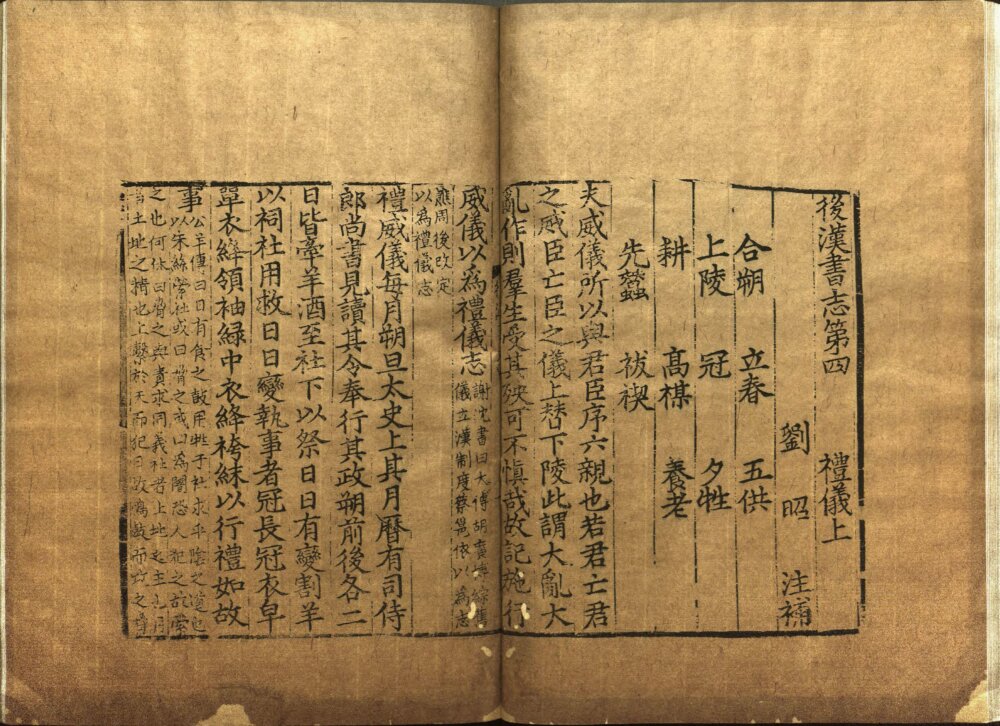 後漢書志第四 禮儀上
劉昭 注補
合朔 立春 五供
上陵 冠 夕牲
耕 高禖 養老
先蠶 祓禊
夫威儀所以與君臣序六親也若君亡君
之威臣亡臣之儀上替下陵此謂大亂大
亂作則羣生受其殃可不慎哉故記施行
威儀以爲禮儀志
謝沈書曰太傅胡廣博綜舊
儀立漢制度蔡邕依以爲志
譙周後改定
以爲禮儀志
禮威儀每月朔旦太史上其月曆有司侍
郎尚書見讀其令奉行其政朔前後各二
日皆牽羊酒至社下以祭日日有變割羊
以祠社用救日日變執事者冠長冠衣皁
單衣絳領袖緣中衣絳袴絑以行禮如故
事
公羊傳曰日有食之鼓用牲于社求乎陰之道也
以朱絲營社或曰脅之或曰爲闇恐人犯之故營
之也何休曰脅之與責求同義社者土地之主也月
者土地之精也上繫於天而犯日故鳴鼓而攻之